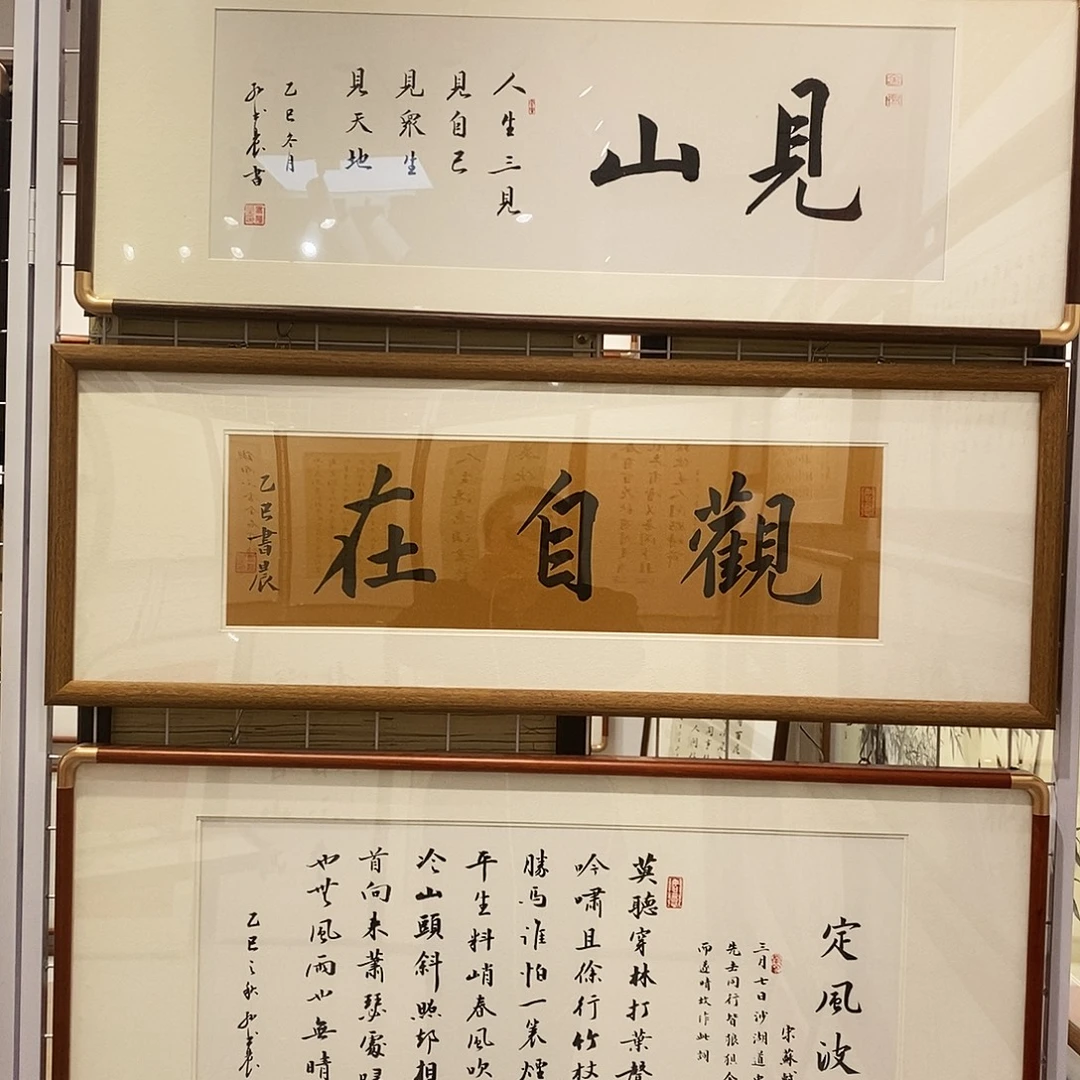 見山
人生三見
見自己
見眾生
見天地
乙巳冬月
書
觀自在
乙巳書晨
定風波
宋蘇軾
三月七日沙湖道中
先去同行皆狼狽余
而遂晴故作此詞
莫聽穿林打葉聲
吟嘯且徐行竹杖
勝馬誰怕一蓑煙
平生料峭春風吹
冷山頭斜照却相
首向來蕭瑟處歸
也無風雨也無晴
乙巳之秋